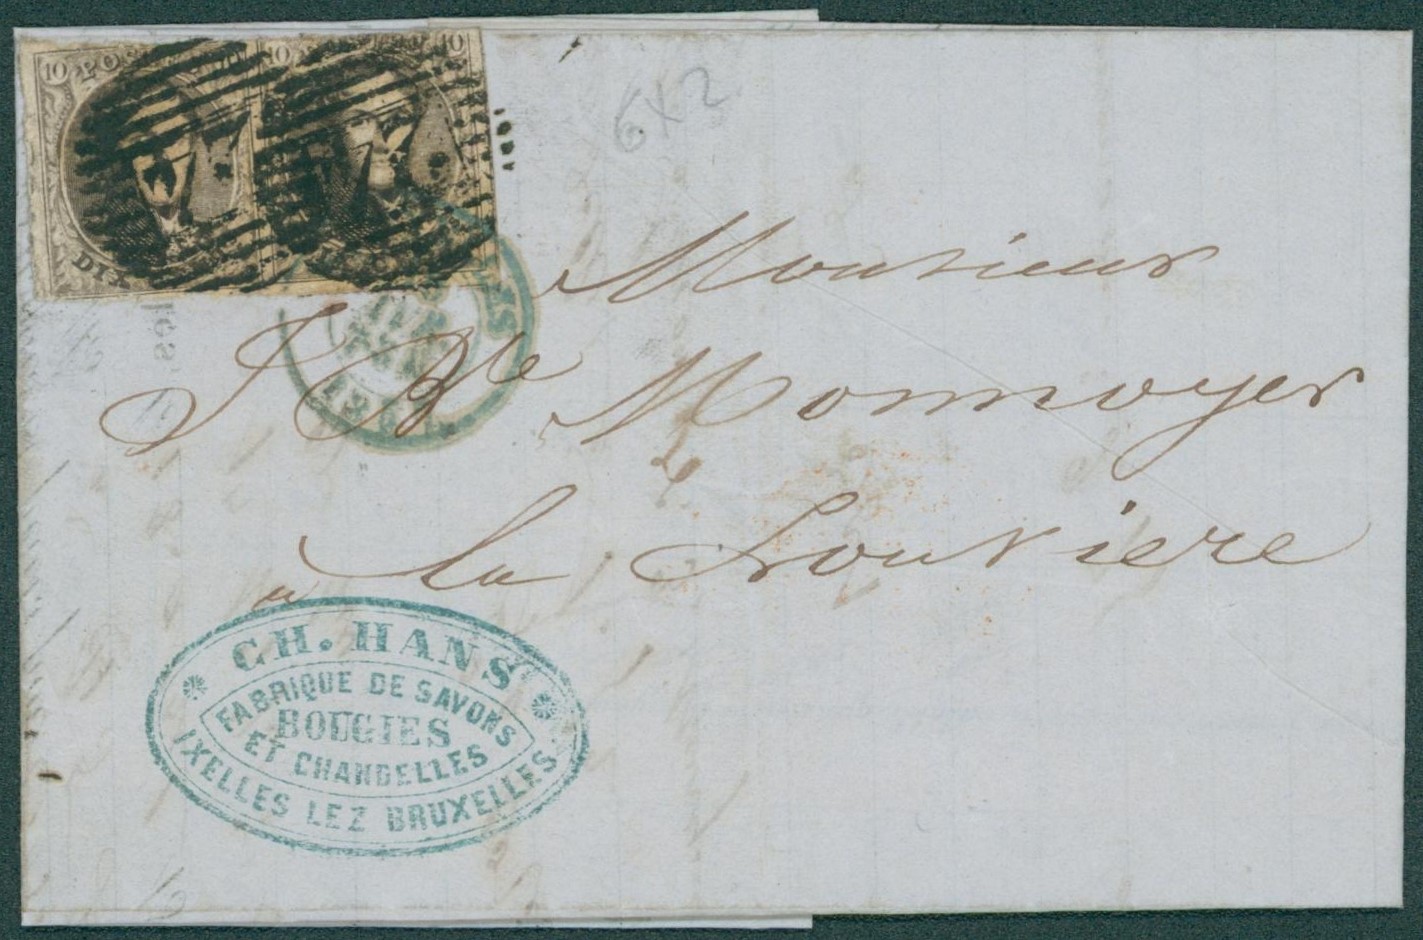 10 POS 10 10
DIX
6x2
Monsieur
J Bte Monnoyer
à la Louviere
CH. HANS
FABRIQUE DE SAVONS
BOUGIES
ET CHANDELLES
IXELLES LEZ BRUXELLES